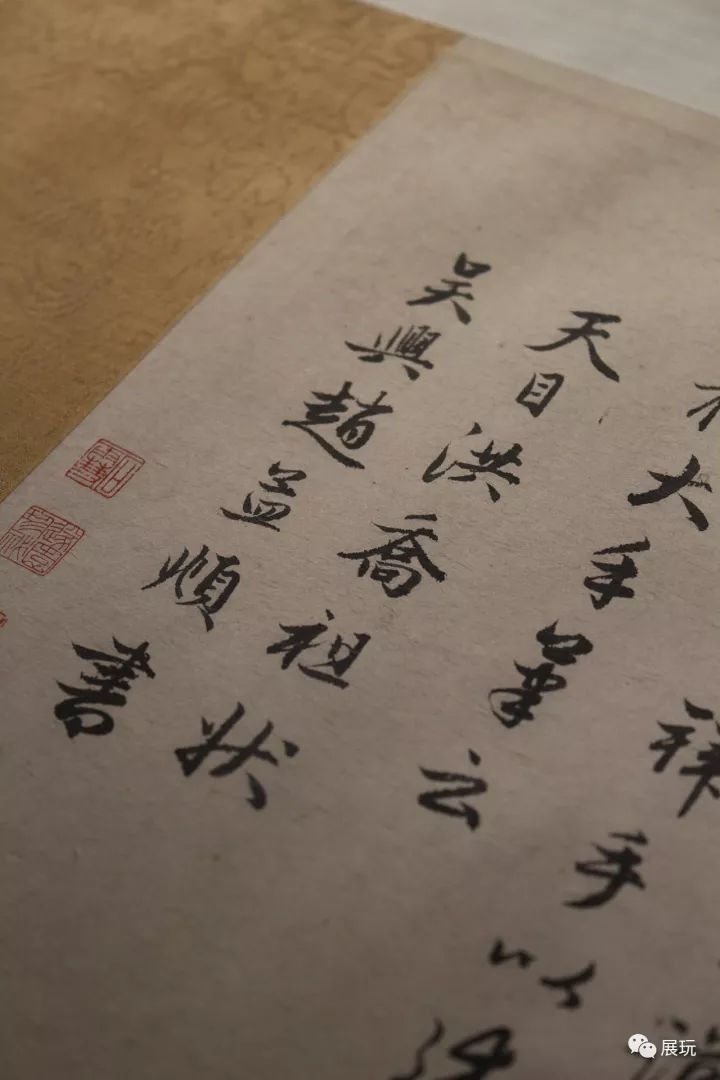 祥手以
大手筆云
天目洪喬祖狀
吳興趙孟頫書
展玩